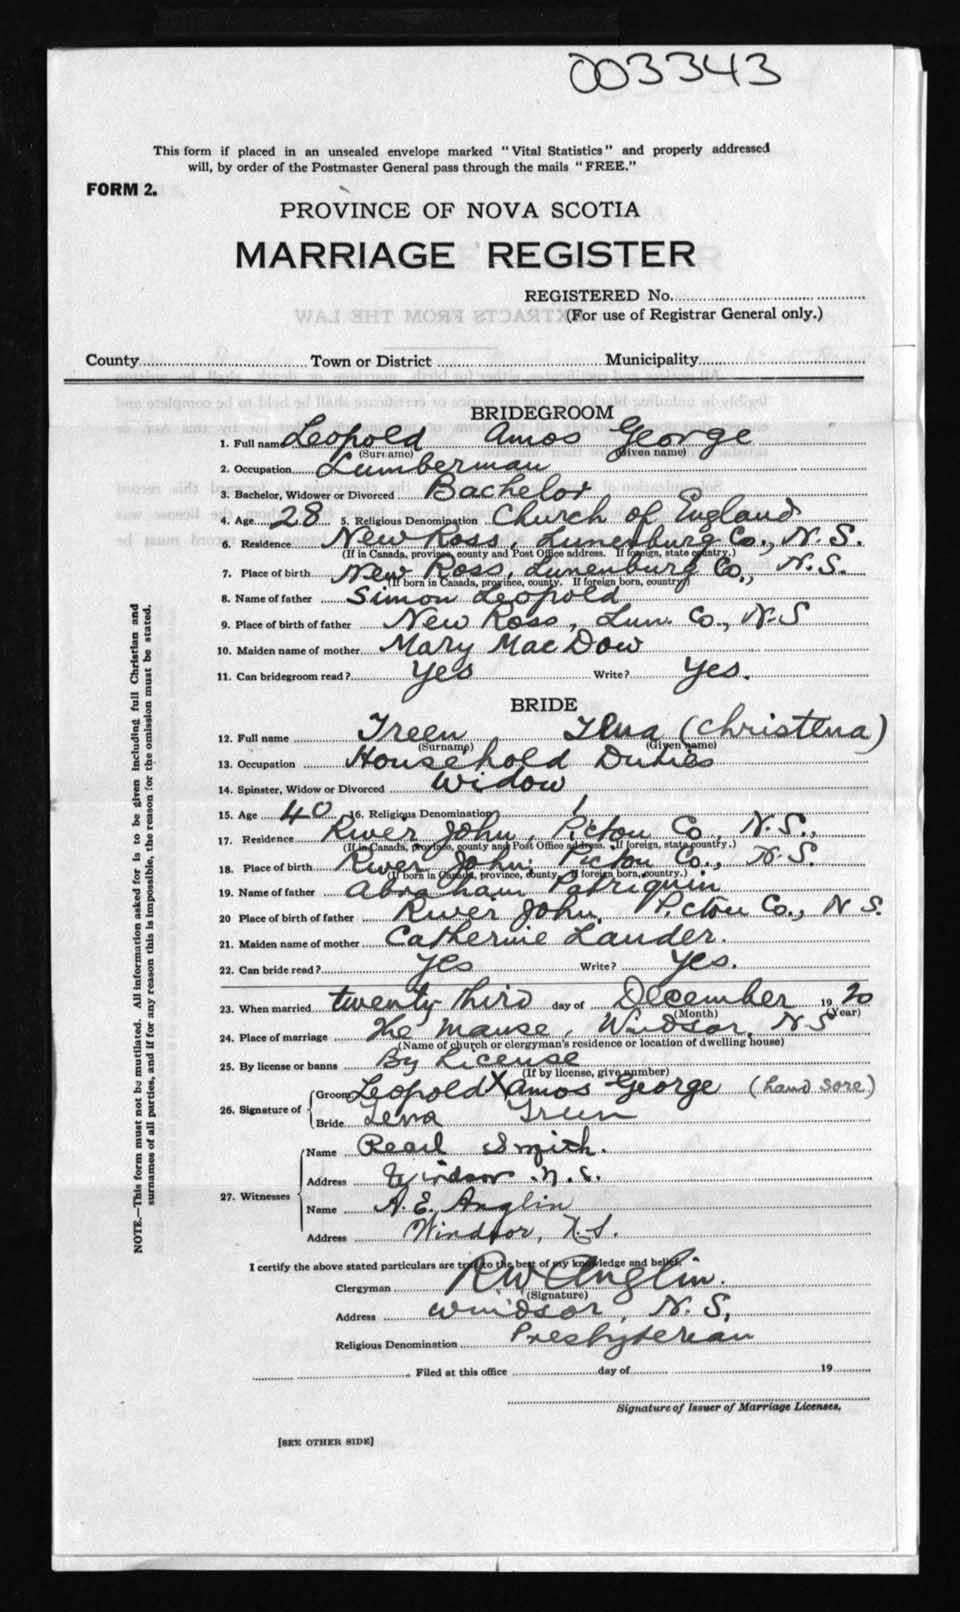 003343
This form if placed in an unsealed envelope marked "Vital Statistics" and properly addressed
will, by order of the Postmaster General pass through the mails "FREE."
FORM 2.
PROVINCE OF NOVA SCOTIA
MARRIAGE REGISTER
REGISTERED No.
(For use of Registrar General only.)
EXTRACTS FROM THE LAW
County Town or District Municipality
BRIDEGROOM
1. Full name Leopold Amos George
(Surname) (Given name)
2. Occupation Lumberman
3. Bachelor, Widower or Divorced Bachelor
4. Age 28 5. Religious Denomination Church of England
6. Residence New Ross, Lunenburg Co., N.S.
(If in Canada, province, county and Post Office address. If foreign, state country.)
7. Place of birth New Ross, Lunenburg Co., N.S.
(If born in Canada, province, county. If foreign born, country)
8. Name of father Simon Leopold
9. Place of birth of father New Ross, Lun. Co., N.S
10. Maiden name of mother Mary MacDow
11. Can bridegroom read? Yes Write? Yes.
BRIDE
12. Full name Treen (Christena)
(Surname) (Given name)
13. Occupation Household Duties
14. Spinster, Widow or Divorced Widow
15. Age 40 16. Religious Denomination
17. Residence River John, Pictou Co., N.S.,
(If in Canada, province, county and Post Office address. If foreign, state country.)
18. Place of birth River John, Pictou Co., N.S.
(If born in Canada, province, county. If foreign born, country.)
19. Name of father Abraham Patriquin
20 Place of birth of father River John, Pictou Co., N S.
21. Maiden name of mother Catherine Lauder.
22. Can bride read? Yes Write? Yes.
23. When married twenty third day of December 1920
(Month) (Year)
24. Place of marriage The Manse, Windsor, N S
(Name of church or clergyman's residence or location of dwelling house)
25. By license or banns By License
(If by license, give number)
26. Signature of Groom Leopold X Amos George (hand sore)
Bride Lena Treen
27. Witnesses
Name Pearl Smith.
Address Windsor N.S.
Name A. E. Anglin
Address Windsor, N.S.
I certify the above stated particulars are true to the best of my knowledge and belief.
Clergyman R W Anglin.
(Signature)
Address Windsor, N.S,
Religious Denomination Presbyterian
Filed at this office day of 19
Signature of Issuer of Marriage Licenses.
[SEE OTHER SIDE]
NOTE.—This form must not be mutilated. All information asked for is to be given including full Christian and
surnames of all parties, and if for any reason this is impossible, the reason for the omission must be stated.